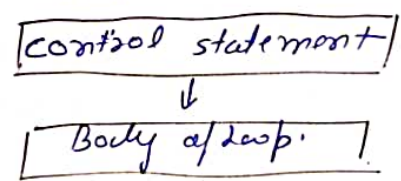 control statement
↓
Body of Loop.